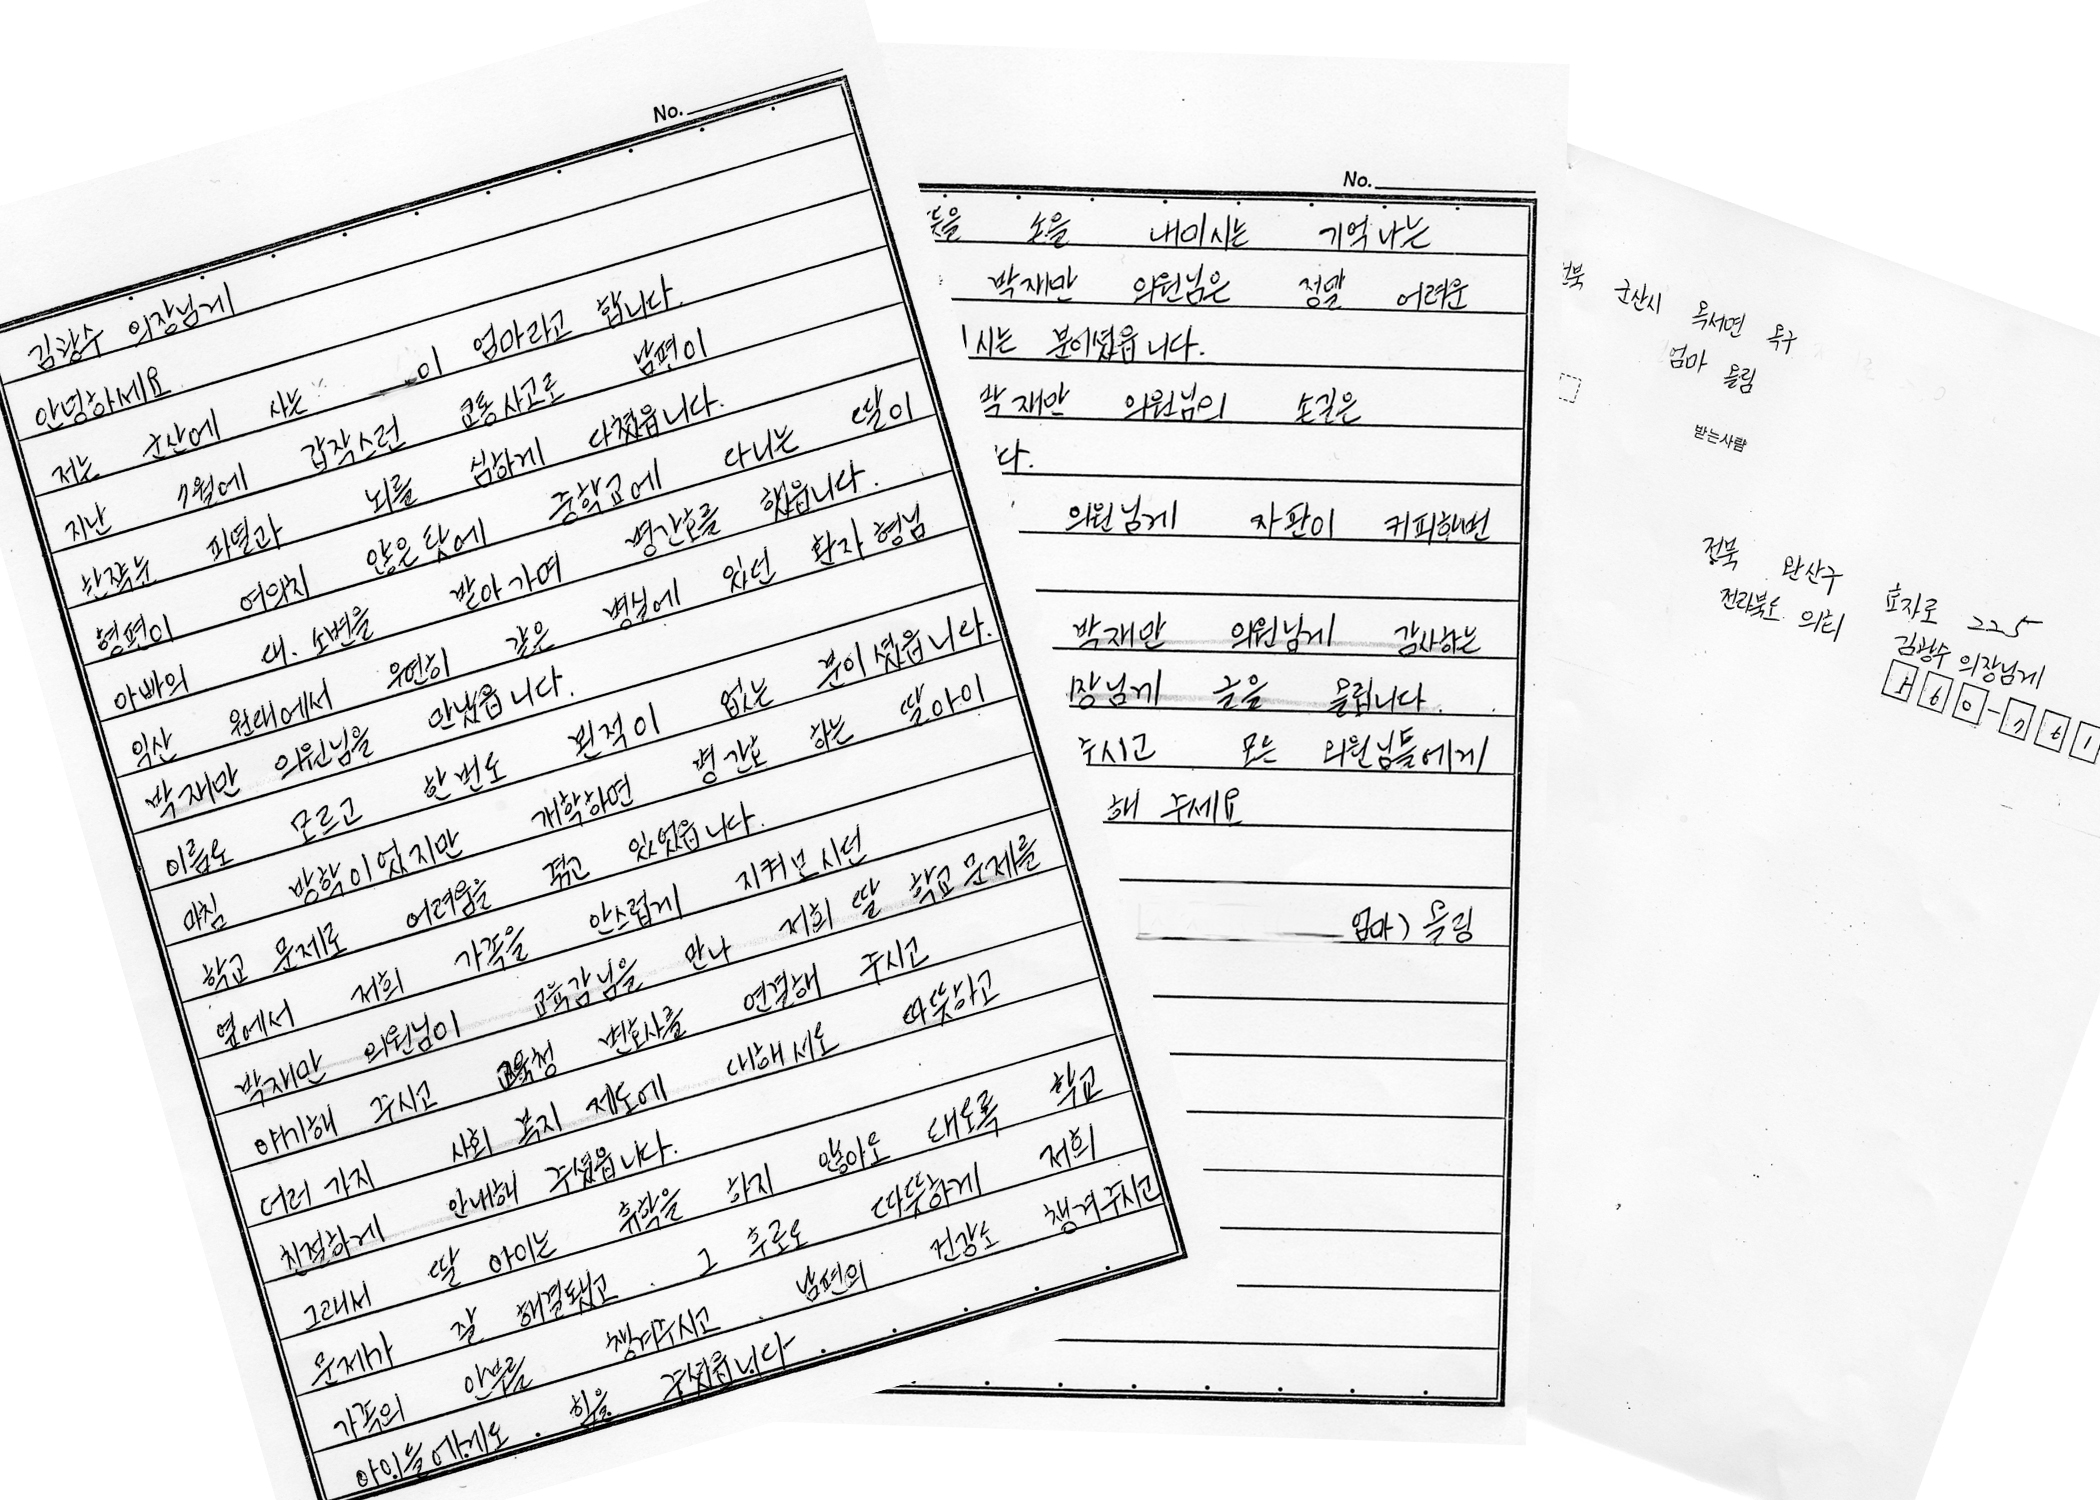 No.
김광수 의장님게
안녕하세요
저는 군산에 사는 이 엄마라고 합니다.
지난 7월에 갑작스런 교통사고로 남편이
한쪽눈 파열과 뇌를 심하게 다쳤읍니다.
형편이 여의치 않은 탓에 중학교에 다니는 딸이
아빠의 대.소변을 받아가며 병간호를 했읍니다.
익산 원대에서 우연히 같은 병실에 있던 환자 형님
박재만 의원님을 만났읍니다.
이름도 모르고 한번도 뵌적이 없는 분이셨읍니다.
마침 방학이었지만 개학하면 병간호 하는 딸아이
학교 문제로 어려움을 겪고 있었읍니다.
옆에서 저희 가족을 안스럽게 지켜보시던
박재만 의원님이 교육감님을 만나 저희 딸 학교문제를
야기해 주시고 교육청 변호사를 연결해 주시고
더러가지 사회 복지 제도에 대해서도 따뜻하고
친절하게 안내해 주셨읍니다.
그래서 딸 아이는 휴학을 하지 않아도 대도록 학교
문제가 잘 해결됐고. 그 후로도 따뜻하게 저희
가족의 안부를 챙겨주시고. 남편의 건강도 챙겨주시고
아이들에게도. 힘을 주셨읍니다
No.
손을 내미시는 기억나는
박재만 의원님은 정말 어려운
시는 분이셨읍니다.
박재만 의원님의 손길은
다.
의원님게 자판이 커피한번
박재만 의원님게 감사하는
장님게 글을 올립니다.
주시고 모든 의원님들에게
해 주세요
엄마) 올림
군산시 옥서면 옥구
엄마 올림
받는사람
전북 완산구 효자로 225
전라북도 의회
김광수 의장님게
560-761